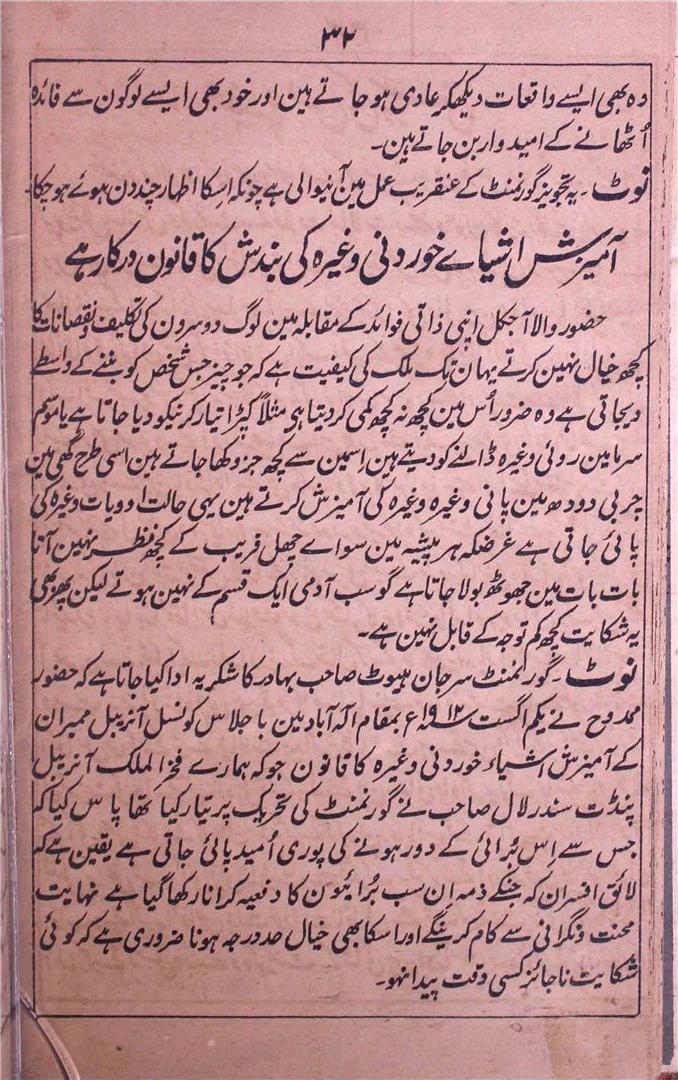 ۳۲
وہ بھی ایسے واقعات دیکھکر عادی ہو جاتے ہین اور خود بھی ایسے لوگون سے فائدہ
اُٹھانے کے امیدوار بن جاتے ہین۔
نوٹ۔ یہ تجویز گورنمنٹ کے عنقریب عمل مین آنیوالی ہے چونکہ اِسکا اظہار چند دن ہوئے ہو چکا۔
آمیزش اشیاے خوردنی وغیرہ کی بندش کا قانون درکار ہے
حضور والا آجکل اپنی ذاتی فوائد کے مقابلہ مین لوگ دوسرون کی تکلیف و نقصانات کا
کچھ خیال نہین کرتے یہان تک ملک کی کیفیت ہے کہ جو چیز جس شخص کو بننے کے واسطے
دیجاتی ہے وہ ضرور اُس مین کچھ نہ کچھ کمی کر دیتا ہی مثلاً کپڑا تیار کرنیکو دیا جاتا ہے یا موسم
سرما مین روئی وغیرہ ڈالنے کو دیتے ہین اِسمین سے کچھ جزو کھا جاتے ہین اسی طرح گھی مین
چربی دودھ مین پانی وغیرہ وغیرہ کی آمیزش کرتے ہین یہی حالت ادویات وغیرہ کی
پائی جاتی ہے غرضکہ ہر پیشہ مین سواے چھل فریب کے کچھ نظر نہین آتا
بات بات مین جھوٹھ بولا جاتا ہے گو سب آدمی ایک قسم کے نہین ہوتے لیکن پھر بھی
یہ شکایت کچھ کم توجہ کے قابل نہین ہے۔
نوٹ۔ گورنمنٹ سر جان ہیوٹ صاحب بہادر کا شکریہ ادا کیا جاتا ہے کہ حضور
ممدوح نے یکم اگست ۱۹۱۲ء بمقام الہ آباد بین باجلاس کونسل آنریبل ممبران
کے آمیزش اشیاء خوردنی وغیرہ کا قانون جو کہ ہمارے فخر الملک آنریبل
پنڈت سندر لال صاحب نے گورنمنٹ کی تحریک پر تیار کیا تھا پاس کیا کہ
جس سے اِس بُرائی کے دور ہونے کی پوری اُمید پائی جاتی ہے یقین ہے کہ
لائق افسران کہ جنکے ذمہ اِن سب بُرائیون کا دفعیہ کرانا رکھا گیا ہے نہایت
محنت ونگرانی سے کام کرینگے اور اسکا بھی خیال حد درجہ ہونا ضروری ہے کہ کوئی
شکایت ناجائز کسی وقت پیدا نہو۔